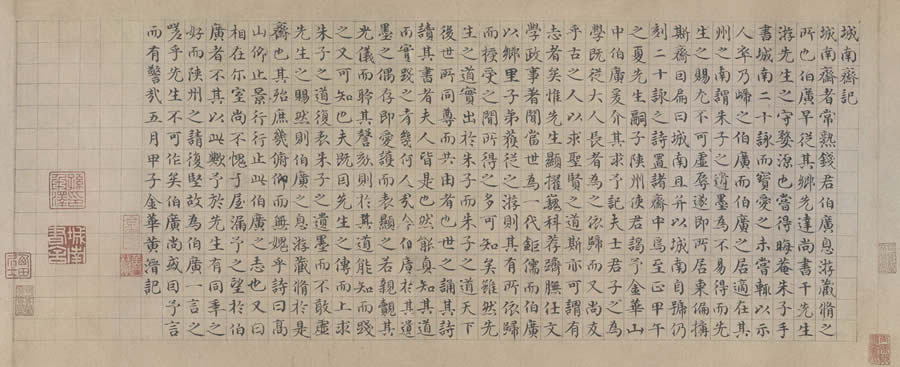 城南齋記
城南齋者常熟錢君伯廣息游藏脩之
所也伯廣早從其鄉先達尚書干先生
游先生之守婺源也嘗得晦菴朱子手
書城南二十詠而寶愛之未嘗輒以示
人卒乃歸之伯廣而伯廣之居適在其
州之南謂朱子之遺墨為不易得而先
生之賜尤不可虛辱遂即所居東偏搆
斯齋因扁曰城南且并以城南自號仍
刻二十詠之詩置諸齋中焉至正甲午
之夏先生嗣子陝州使君謁予金華山
中伯廣爰介其求予記夫士君子之為
學既從大人長者為之依歸而又尚友
乎古之人以求聖賢之道斯亦可謂有
志者矣惟先生顯擢藝科荐躋膴仕文
學政事著聞當世為一代鉅儒而伯廣
以鄉里子弟獲從之游則其有所依歸
而授受之間所得之多可知矣雖然先
生之道實出於朱子而朱子之道天下
後世所同尊而共由者也世之誦其詩
讀其書者夫人皆是也然能真知其道
而實踐之者幾何人哉今伯廣於其遺
墨之偶存即愛護而表顯之若親覿其
光儀而聆其謦欬則於其道能知而踐
之又可知也夫既因先生之傳而上求
朱子之道復表朱子之遺墨而不敢虛
先生之賜然則伯廣之息游藏脩於是
齋也其殆庶幾俯仰而無媿乎詩曰高
山仰止景行行止此伯廣之志也又曰
相在尔室尚不愧于屋漏予之望於伯
廣者不其以此歟予於先生有同年之
好而陝州之請復堅故為伯廣一言之
嗟乎先生不可作矣伯廣尚或因予言
而有警哉五月甲子金華黃溍記